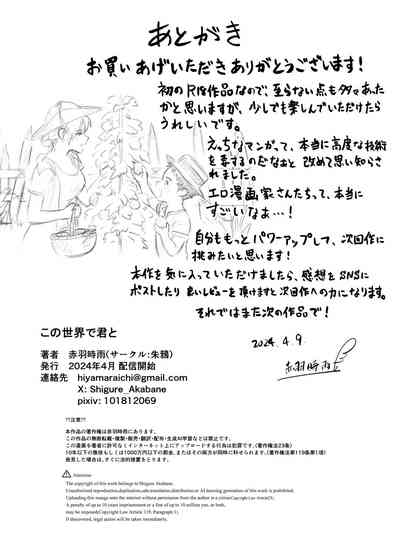 あとがき
お買いあげいただきありがとうございます!
初のR18作品なので、至らない点も多々あった
かと思いますが、少しでも楽しんでいただけたら
うれしいです。
えっちなマンガって、本当に高度な技術
を要するのだなぁと 改めて思い知ら
されました。
エロ漫画家さんたちって、本当に
すごいなぁ…!
自分ももっとパワーアップして、次回作に
挑みたいと思います!
本作を気に入っていただけましたら、感想をSNSに
ポストしたり 良いレビューを頂けますと次回作への力になります。
それではまた次の作品で!
2024.4.9.
赤羽時雨
この世界で君と
著者 赤羽時雨(サークル:朱鴉)
発行 2024年4月 配信開始
連絡先 hiyamaraichi@gmail.com
X: Shigure_Akabane
pixiv: 101812069
??注意??
本作品の著作権は赤羽時雨にあります。
この作品の無断転載・複製・販売・翻訳・配布・生成AI学習などは禁止です。
この漫画を著者に許可なくインターネット上にアップロードする行為は犯罪です。(著作権法23条)
10年以下の懲役もしくは1000万円以下の罰金、またはその両方が同時に科せられます。(著作権法第119条第1項)
発見した場合は、すぐに法的措置をとります。
⚠ Attention
The copyright of this work belongs to Shigure Akabane.
Unauthorized reproduction,duplication,sale,translation,distribution or AI learning generation of this work is prohibited.
Uploading this manga onto the internet without permission from the author is a crime(Copyright Law Article23).
A penalty of up to 10 years imprisonment or a fine of up to 10 million yen, or both,
may be imposed(Copyright Law Article 119, Paragraph 1).
If discovered, legal action will be taken immediately.